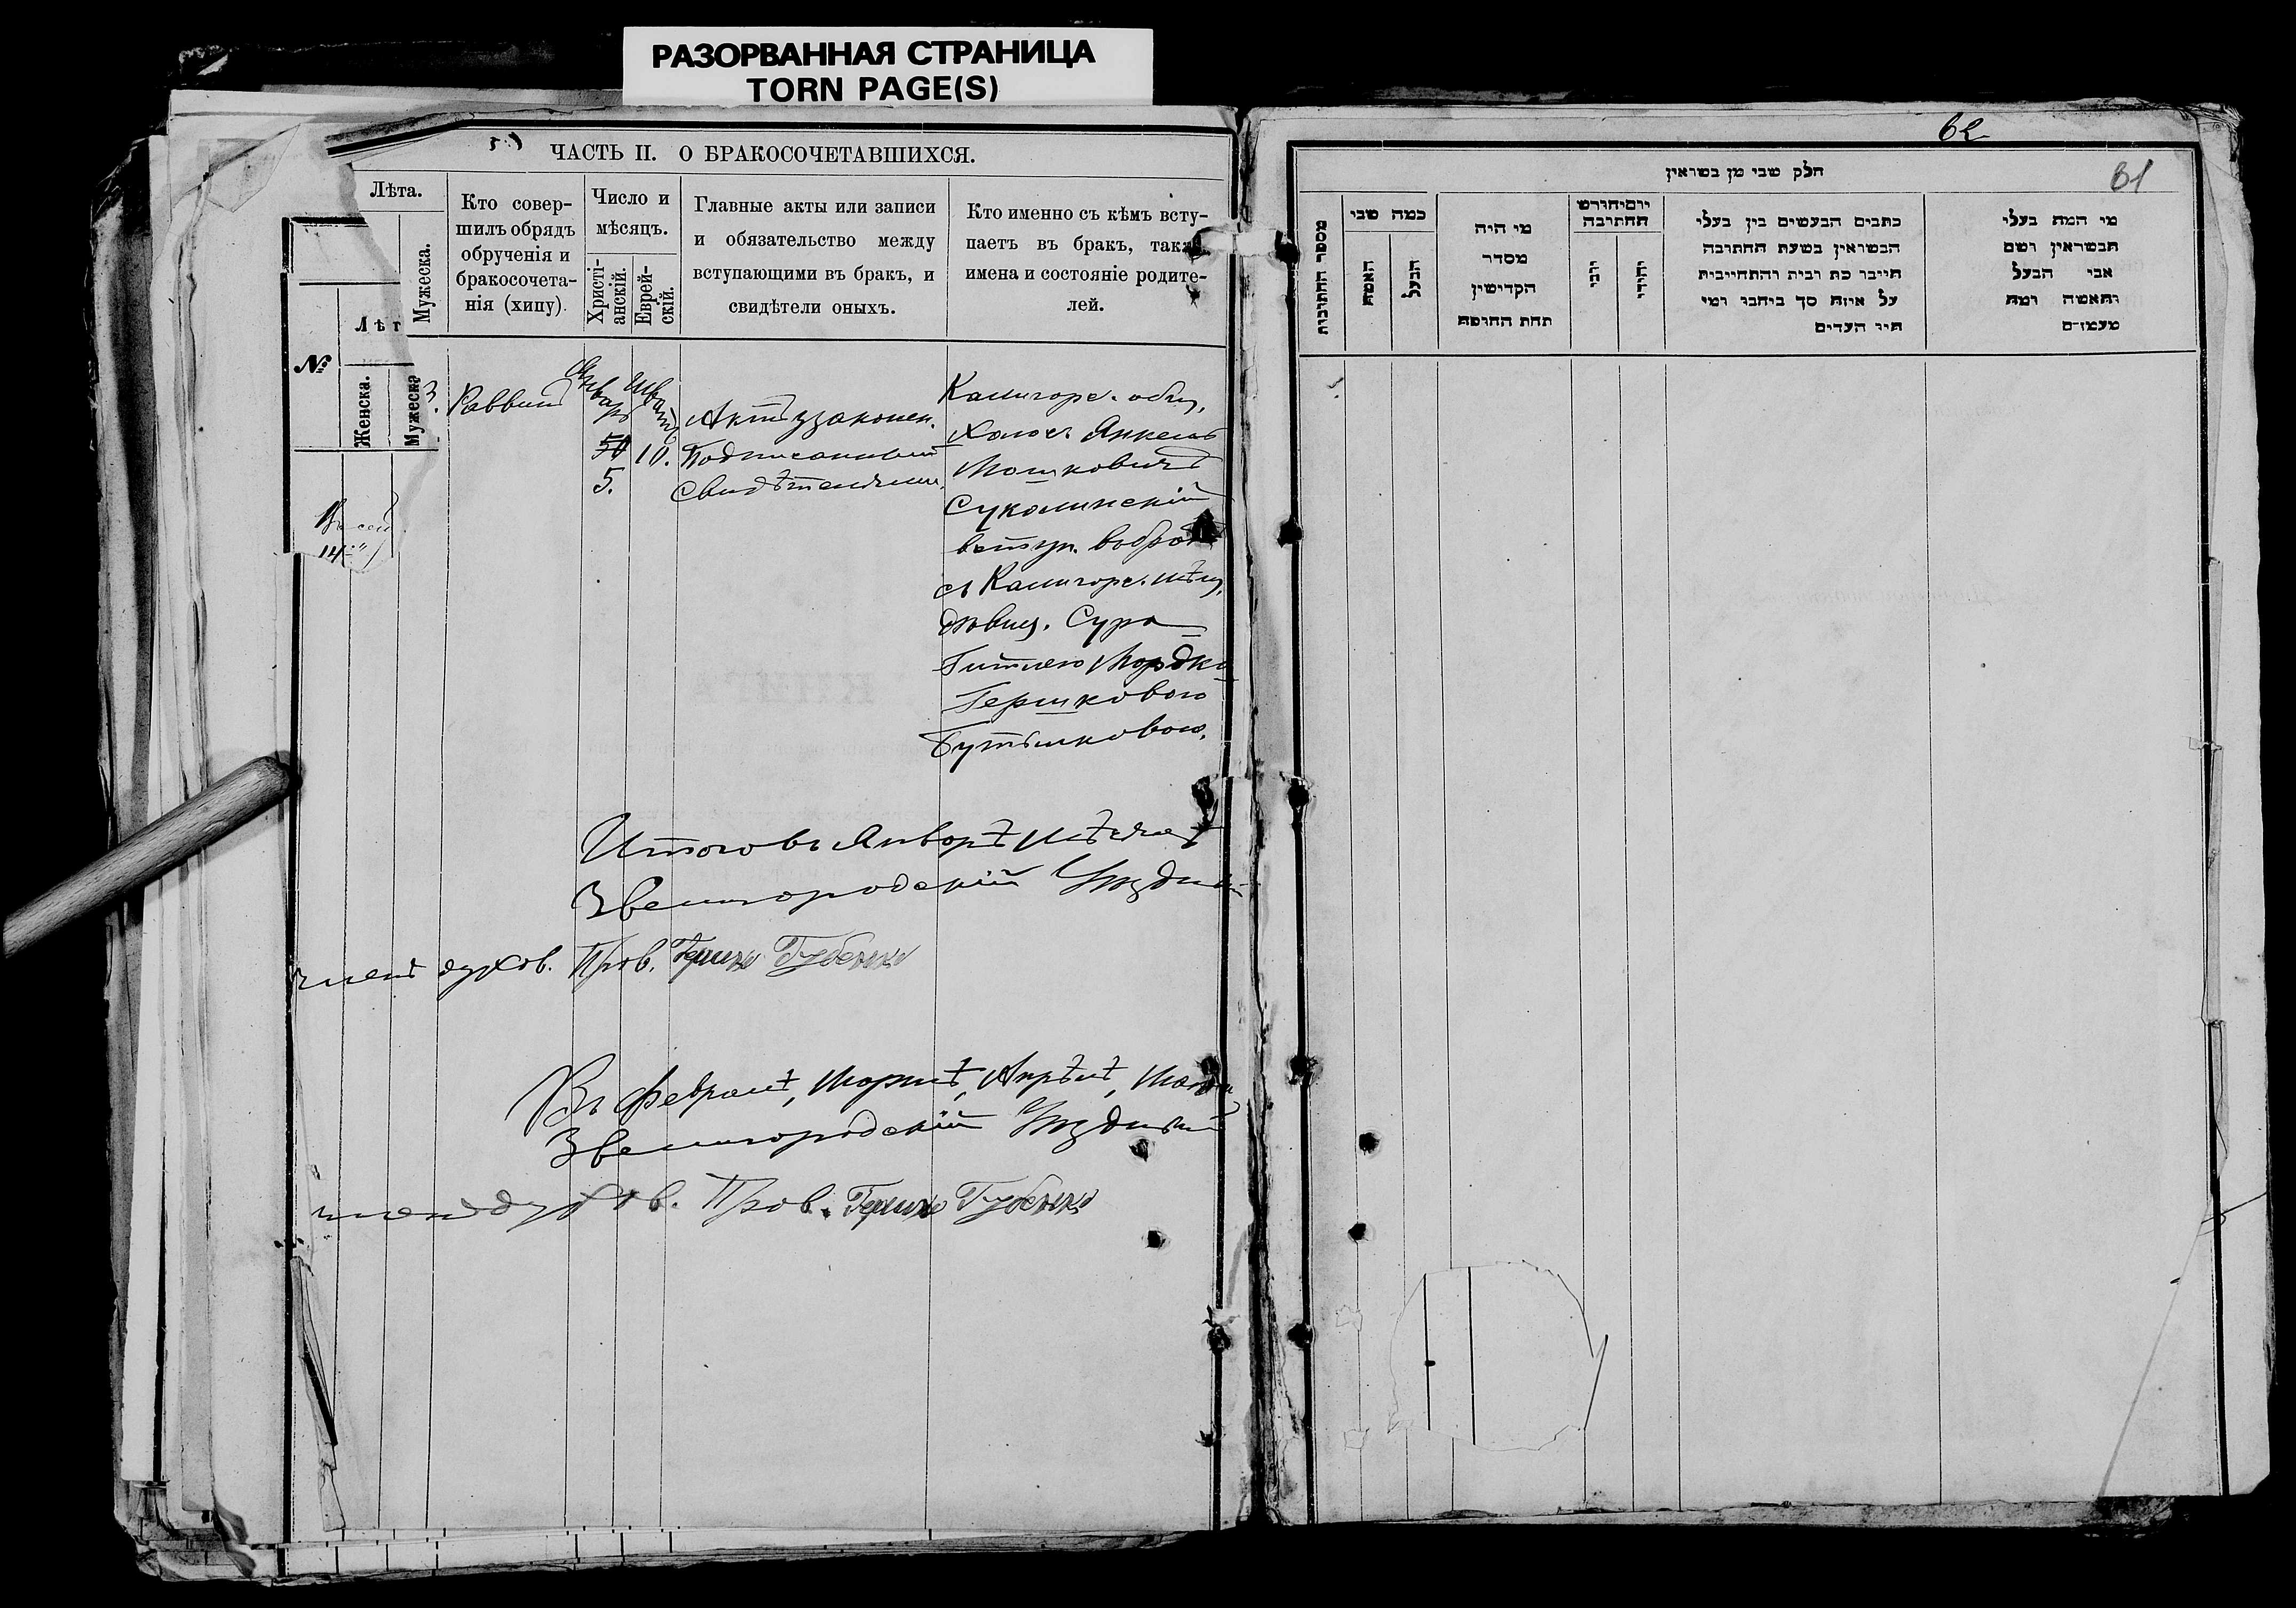 РАЗОРВАННАЯ СТРАНИЦА
TORN PAGE(S)
ЧАСТЬ II. О БРАКОСОЧЕТАВШИХСЯ.
Лѣта.
Мужеска.
Кто совер-
шилъ обрядъ
обрученія и
бракосочета-
нія (хипу).
Число и
мѣсяцъ.
Христі-
анскій.
Еврей-
скій.
Главные акты или записи
и обязательство между
вступающими въ бракъ, и
свидѣтели оныхъ.
Кто именно съ кѣмъ всту-
паетъ въ бракъ, также
имена и состояніе родите-
лей.
№
Лѣт
Женска.
Мужеска
3.
Раввинъ
Январь
5.
10.
Актъ узаконен.
Подписанный
Свидѣтелями.
Калигорс. общ.
Холос. Янкель
Мошковичъ
вступ. въ бракъ
съ Калигорс. мѣщ.
дѣвиц. Сура
Гитлею Мордко
Гершковою
14
Итого въ Январѣ мѣсяцѣ
Звенигородскій Уѣздный
членъ духов. Прав. Герш Губенко
Въ Февралѣ, Мартѣ, Апрѣлѣ, Маѣ
Звенигородскій Уѣздный
членъ духов. Прав. Герш Губенко
62
61
חלק שבי מן בשראין
מספר החתובית
כמה שבי
האשה
הבעל
מי היה
מסדר
הקדישין
תחת החופה
החתובה
יוני
יהודי
כתבים הבעשים בין בעלי
הבשראין בשעת החתובה
חייבו כת ובית והתחייבית
על איזה סך ביחבו ומי
היו העדים
מי המה בעלי
הבשראין ושם
אבי הבעל
והאשה ומה
מעמדם